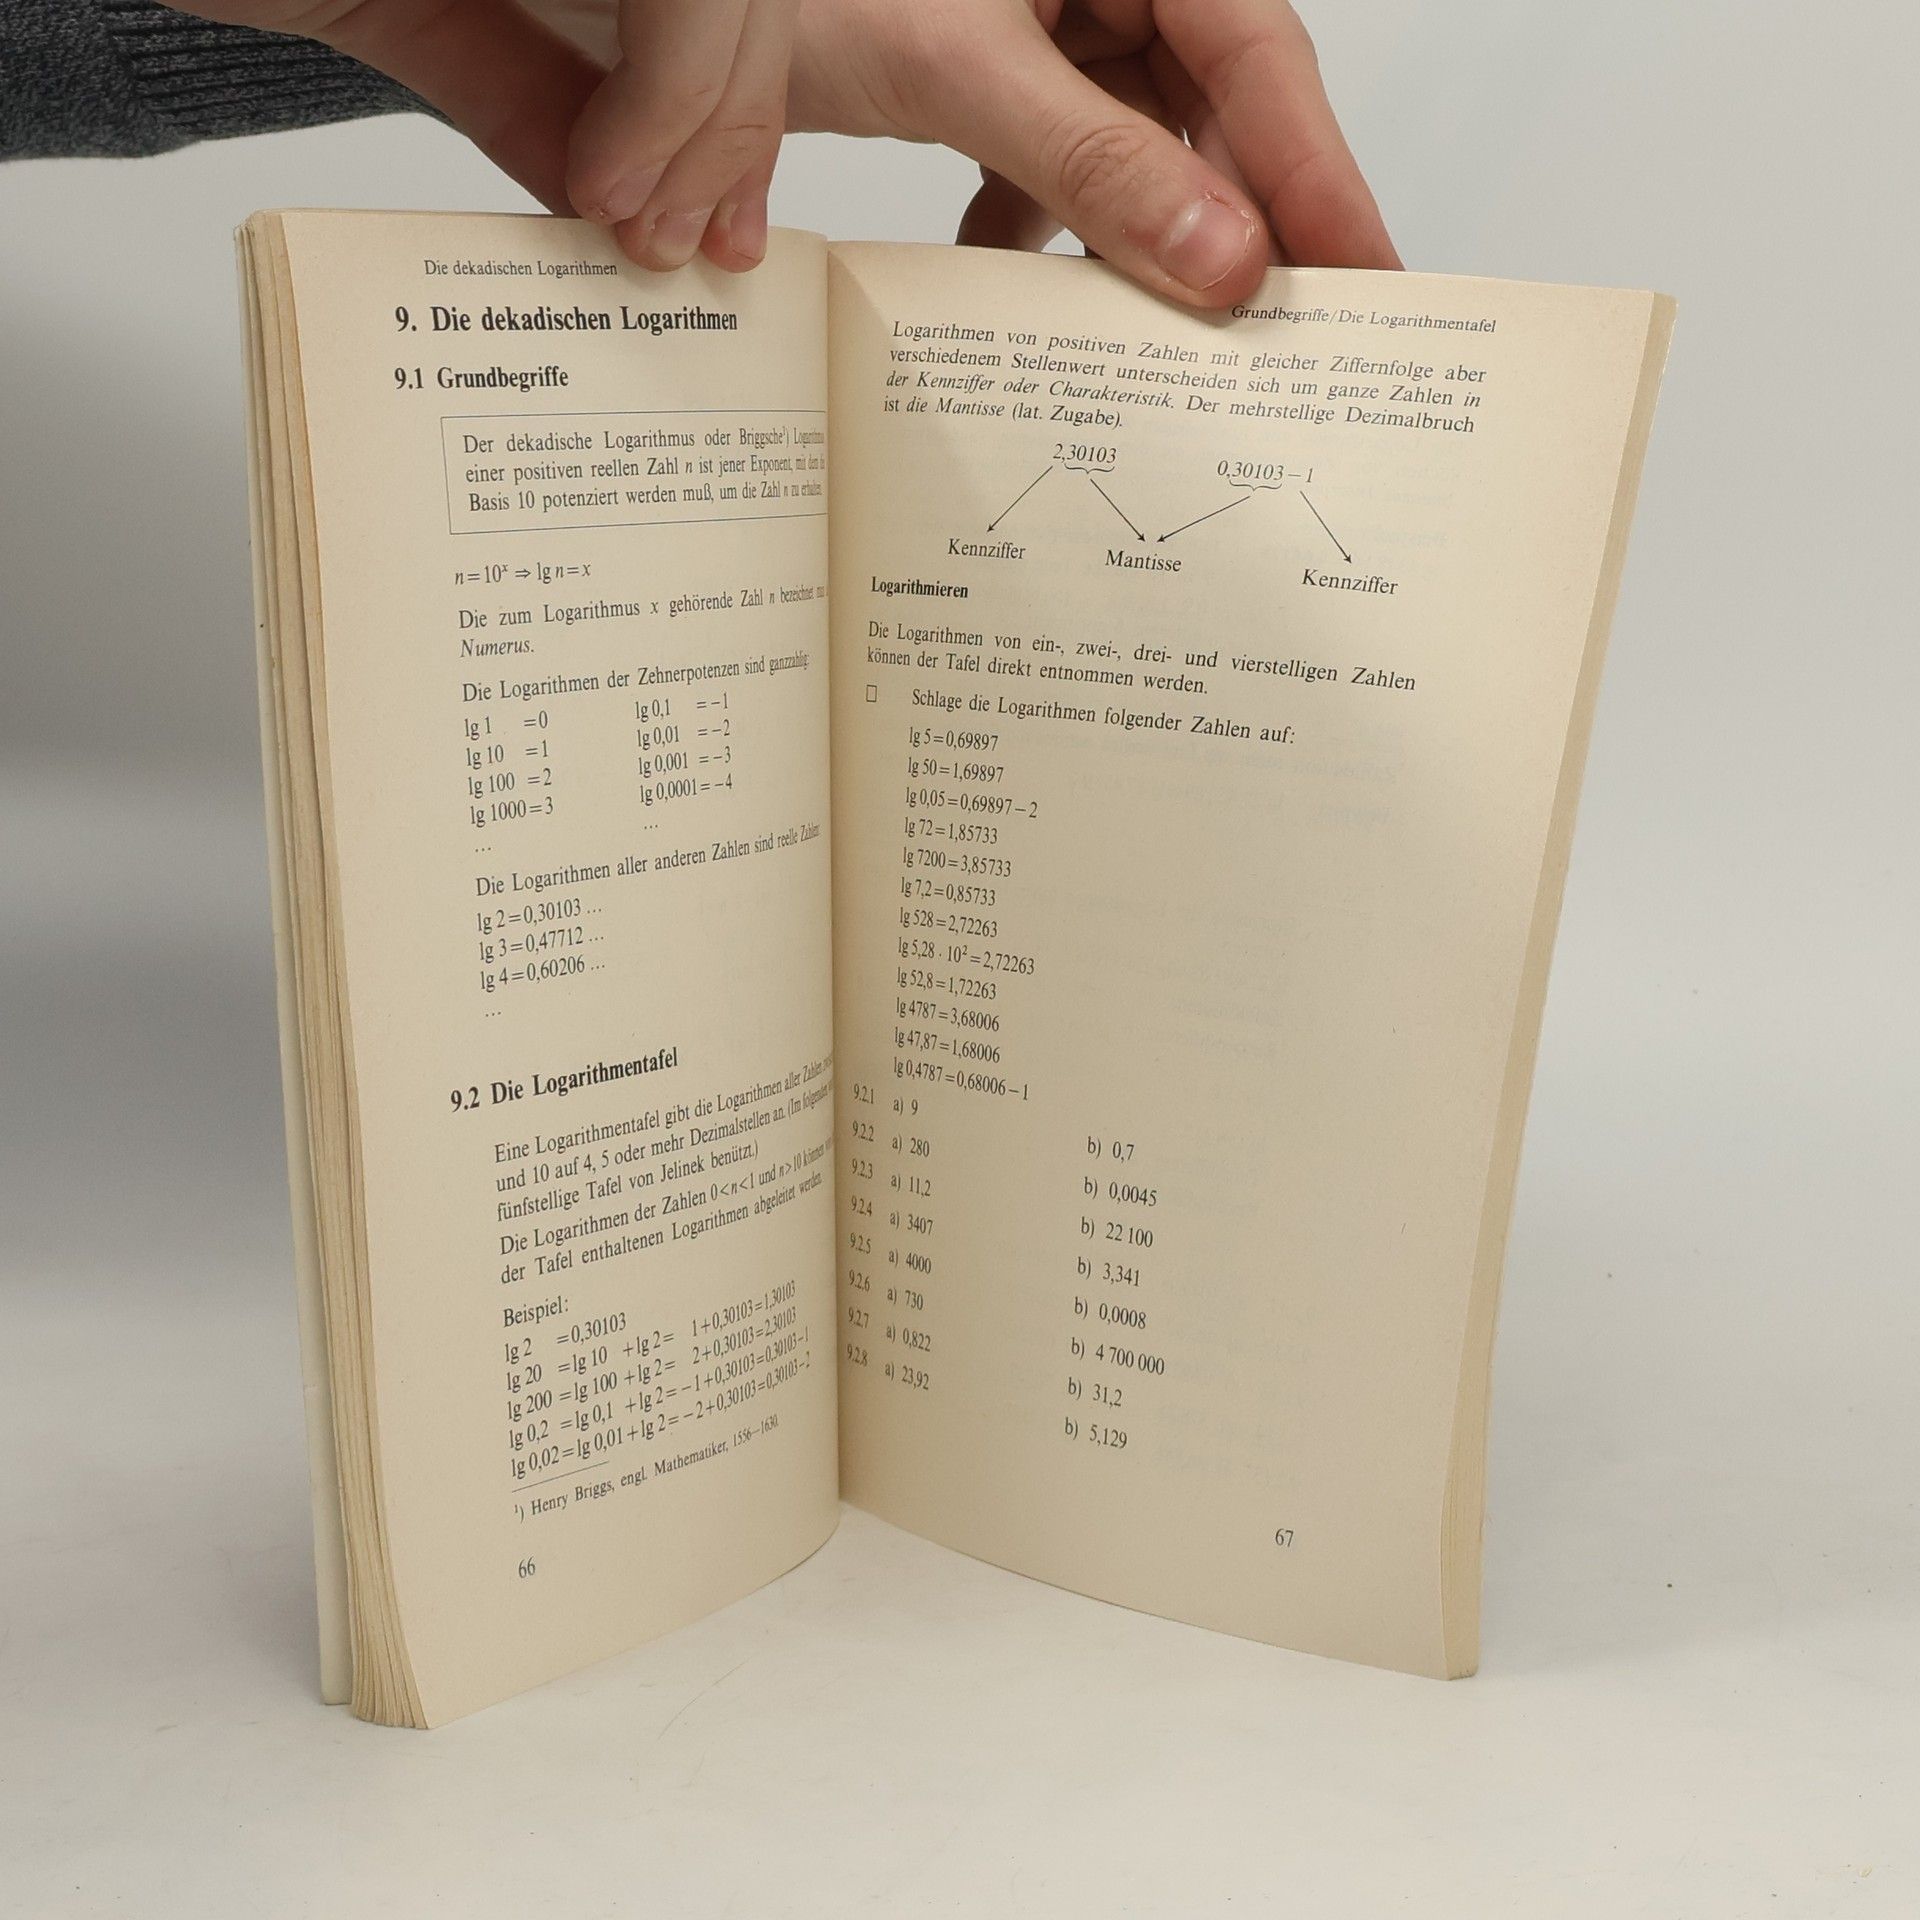 Die dekadischen Logarithmen
9. Die dekadischen Logarithmen
9.1 Grundbegriffe
Der dekadische Logarithmus oder Briggsche¹)
einer positiven reellen Zahl n ist jener Exponent, mit dem
Basis 10 potenziert werden muß, um die Zahl n zu erhalten.
n=10ˣ ⇒ lg n=x
Die zum Logarithmus x gehörende Zahl n bezeichnet
Numerus.
Die Logarithmen der Zehnerpotenzen sind ganzzahlig:
lg 1 =0 lg 0,1 =−1
lg 10 =1 lg 0,01 =−2
lg 100 =2 lg 0,001 =−3
lg 1000=3 lg 0,0001=−4
... ...
Die Logarithmen aller anderen Zahlen sind reelle Zahlen:
lg 2=0,30103 ...
lg 3=0,47712 ...
lg 4=0,60206 ...
...
9.2 Die Logarithmentafel
Eine Logarithmentafel gibt die Logarithmen aller Zahlen
und 10 auf 4, 5 oder mehr Dezimalstellen an. (Im folgenden
fünfstellige Tafel von Jelinek benützt.)
Die Logarithmen der Zahlen 0<n<1 und n>10 können
der Tafel enthaltenen Logarithmen abgeleitet werden.
Beispiel:
lg 2 =0,30103
lg 20 =lg 10 +lg 2= 1+0,30103=1,30103
lg 200 =lg 100 +lg 2= 2+0,30103=2,30103
lg 0,2 =lg 0,1 +lg 2=−1+0,30103=0,30103−1
lg 0,02=lg 0,01+lg 2=−2+0,30103=0,30103−2
¹) Henry Briggs, engl. Mathematiker, 1556—1630.
66
Grundbegriffe/Die Logarithmentafel
Logarithmen von positiven Zahlen mit gleicher Ziffernfolge aber
verschiedenem Stellenwert unterscheiden sich um ganze Zahlen in
der Kennziffer oder Charakteristik. Der mehrstellige Dezimalbruch
ist die Mantisse (lat. Zugabe).
2,30103 0,30103−1
Kennziffer Mantisse Kennziffer
Logarithmieren
Die Logarithmen von ein-, zwei-, drei- und vierstelligen Zahlen
können der Tafel direkt entnommen werden.
Schlage die Logarithmen folgender Zahlen auf:
lg 5=0,69897
lg 50=1,69897
lg 0,05=0,69897−2
lg 72=1,85733
lg 7200=3,85733
lg 7,2=0,85733
lg 528=2,72263
lg 5,28 · 10²=2,72263
lg 52,8=1,72263
lg 4787=3,68006
lg 47,87=1,68006
lg 0,4787=0,68006−1
9.2.1 a) 9 b) 0,7
9.2.2 a) 280 b) 0,0045
9.2.3 a) 11,2 b) 22 100
9.2.4 a) 3407 b) 3,341
9.2.5 a) 4000 b) 0,0008
9.2.6 a) 730 b) 4 700 000
9.2.7 a) 0,822 b) 31,2
9.2.8 a) 23,92 b) 5,129
67